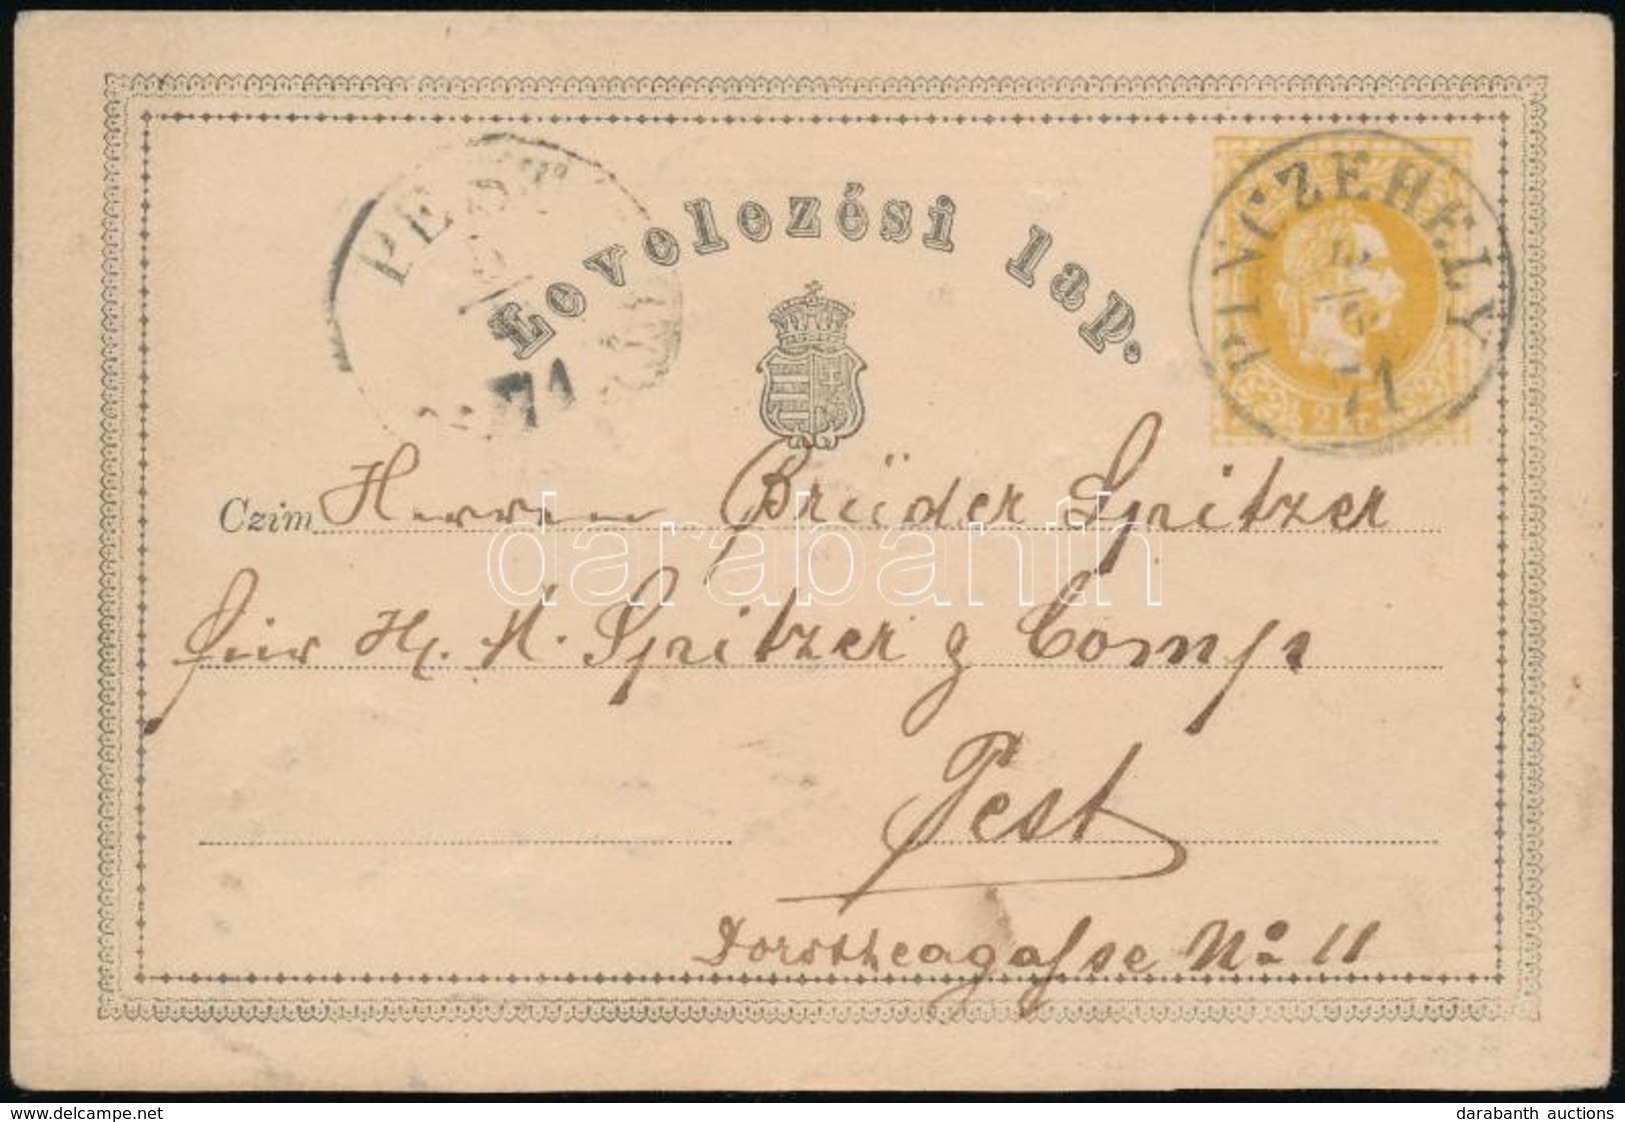 PEST
71
Levelezési lap.
PINCZEHELY
2/6
71
2 kr
Czim Herren Brüder Spitzer
für H. H. Spitzer & Comp
Pest
Dorotheagasse No 11
darabanth
www.delcampe.net
darabanth auctions